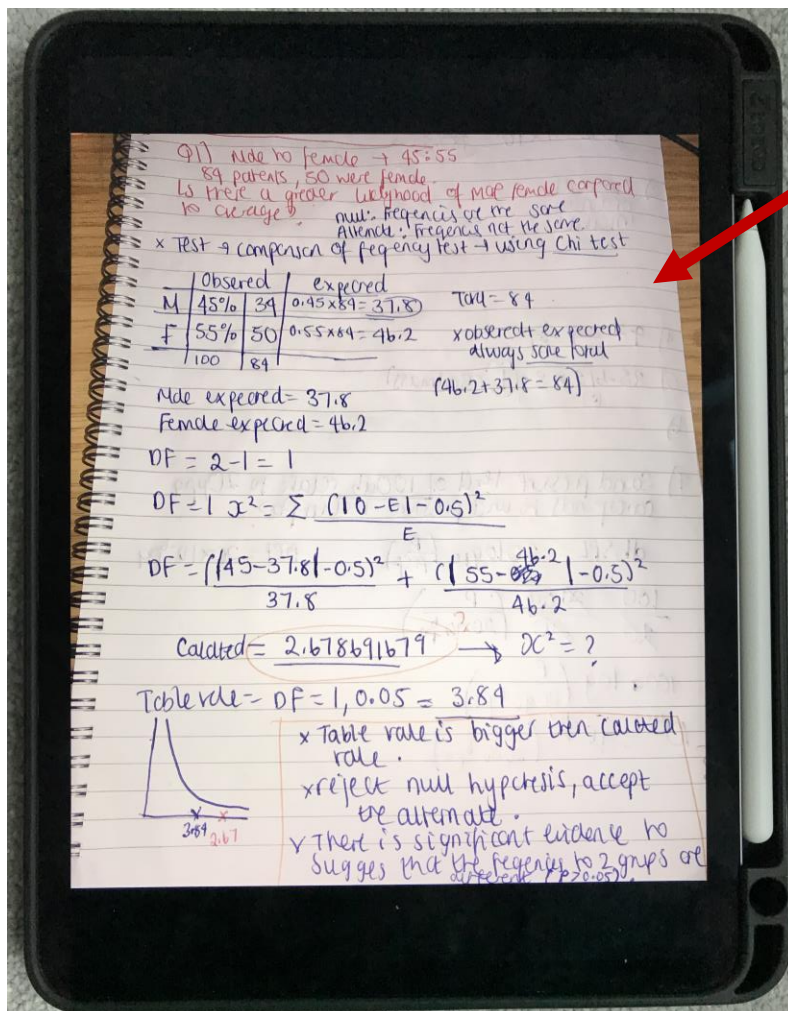 Q1) Male to female → 45:55
84 patients, 50 were female.
Is there a greater likelyhood of male female compared
to average?
null: Freqencis are the same
Alternate: Freqencis not the same.
x Test → comparison of freqency test → using Chi test
Obsered | expected
M | 45% | 34 | 0.45x84= 37.8
F | 55% | 50 | 0.55x84= 46.2
100 | 84
Total = 84
x obsered+ expected
always same total
(46.2+37.8 = 84)
Male expected= 37.8
Female expected = 46.2
DF = 2-1 = 1
DF = 1 x² = Σ (|O-E|-0.5)²
E
DF = (|45-37.8|-0.5)² + (|55-46.2|-0.5)²
37.8 46.2
Calculated = 2.678691679 → x² = ?
Table value = DF = 1, 0.05 = 3.84
x Table value is bigger then calculated
value.
x reject null hypothesis, accept
the alternate.
3.84 2.67
x There is significant evidence to
sugges that the freqencies to 2 groups are
different (P>0.05).